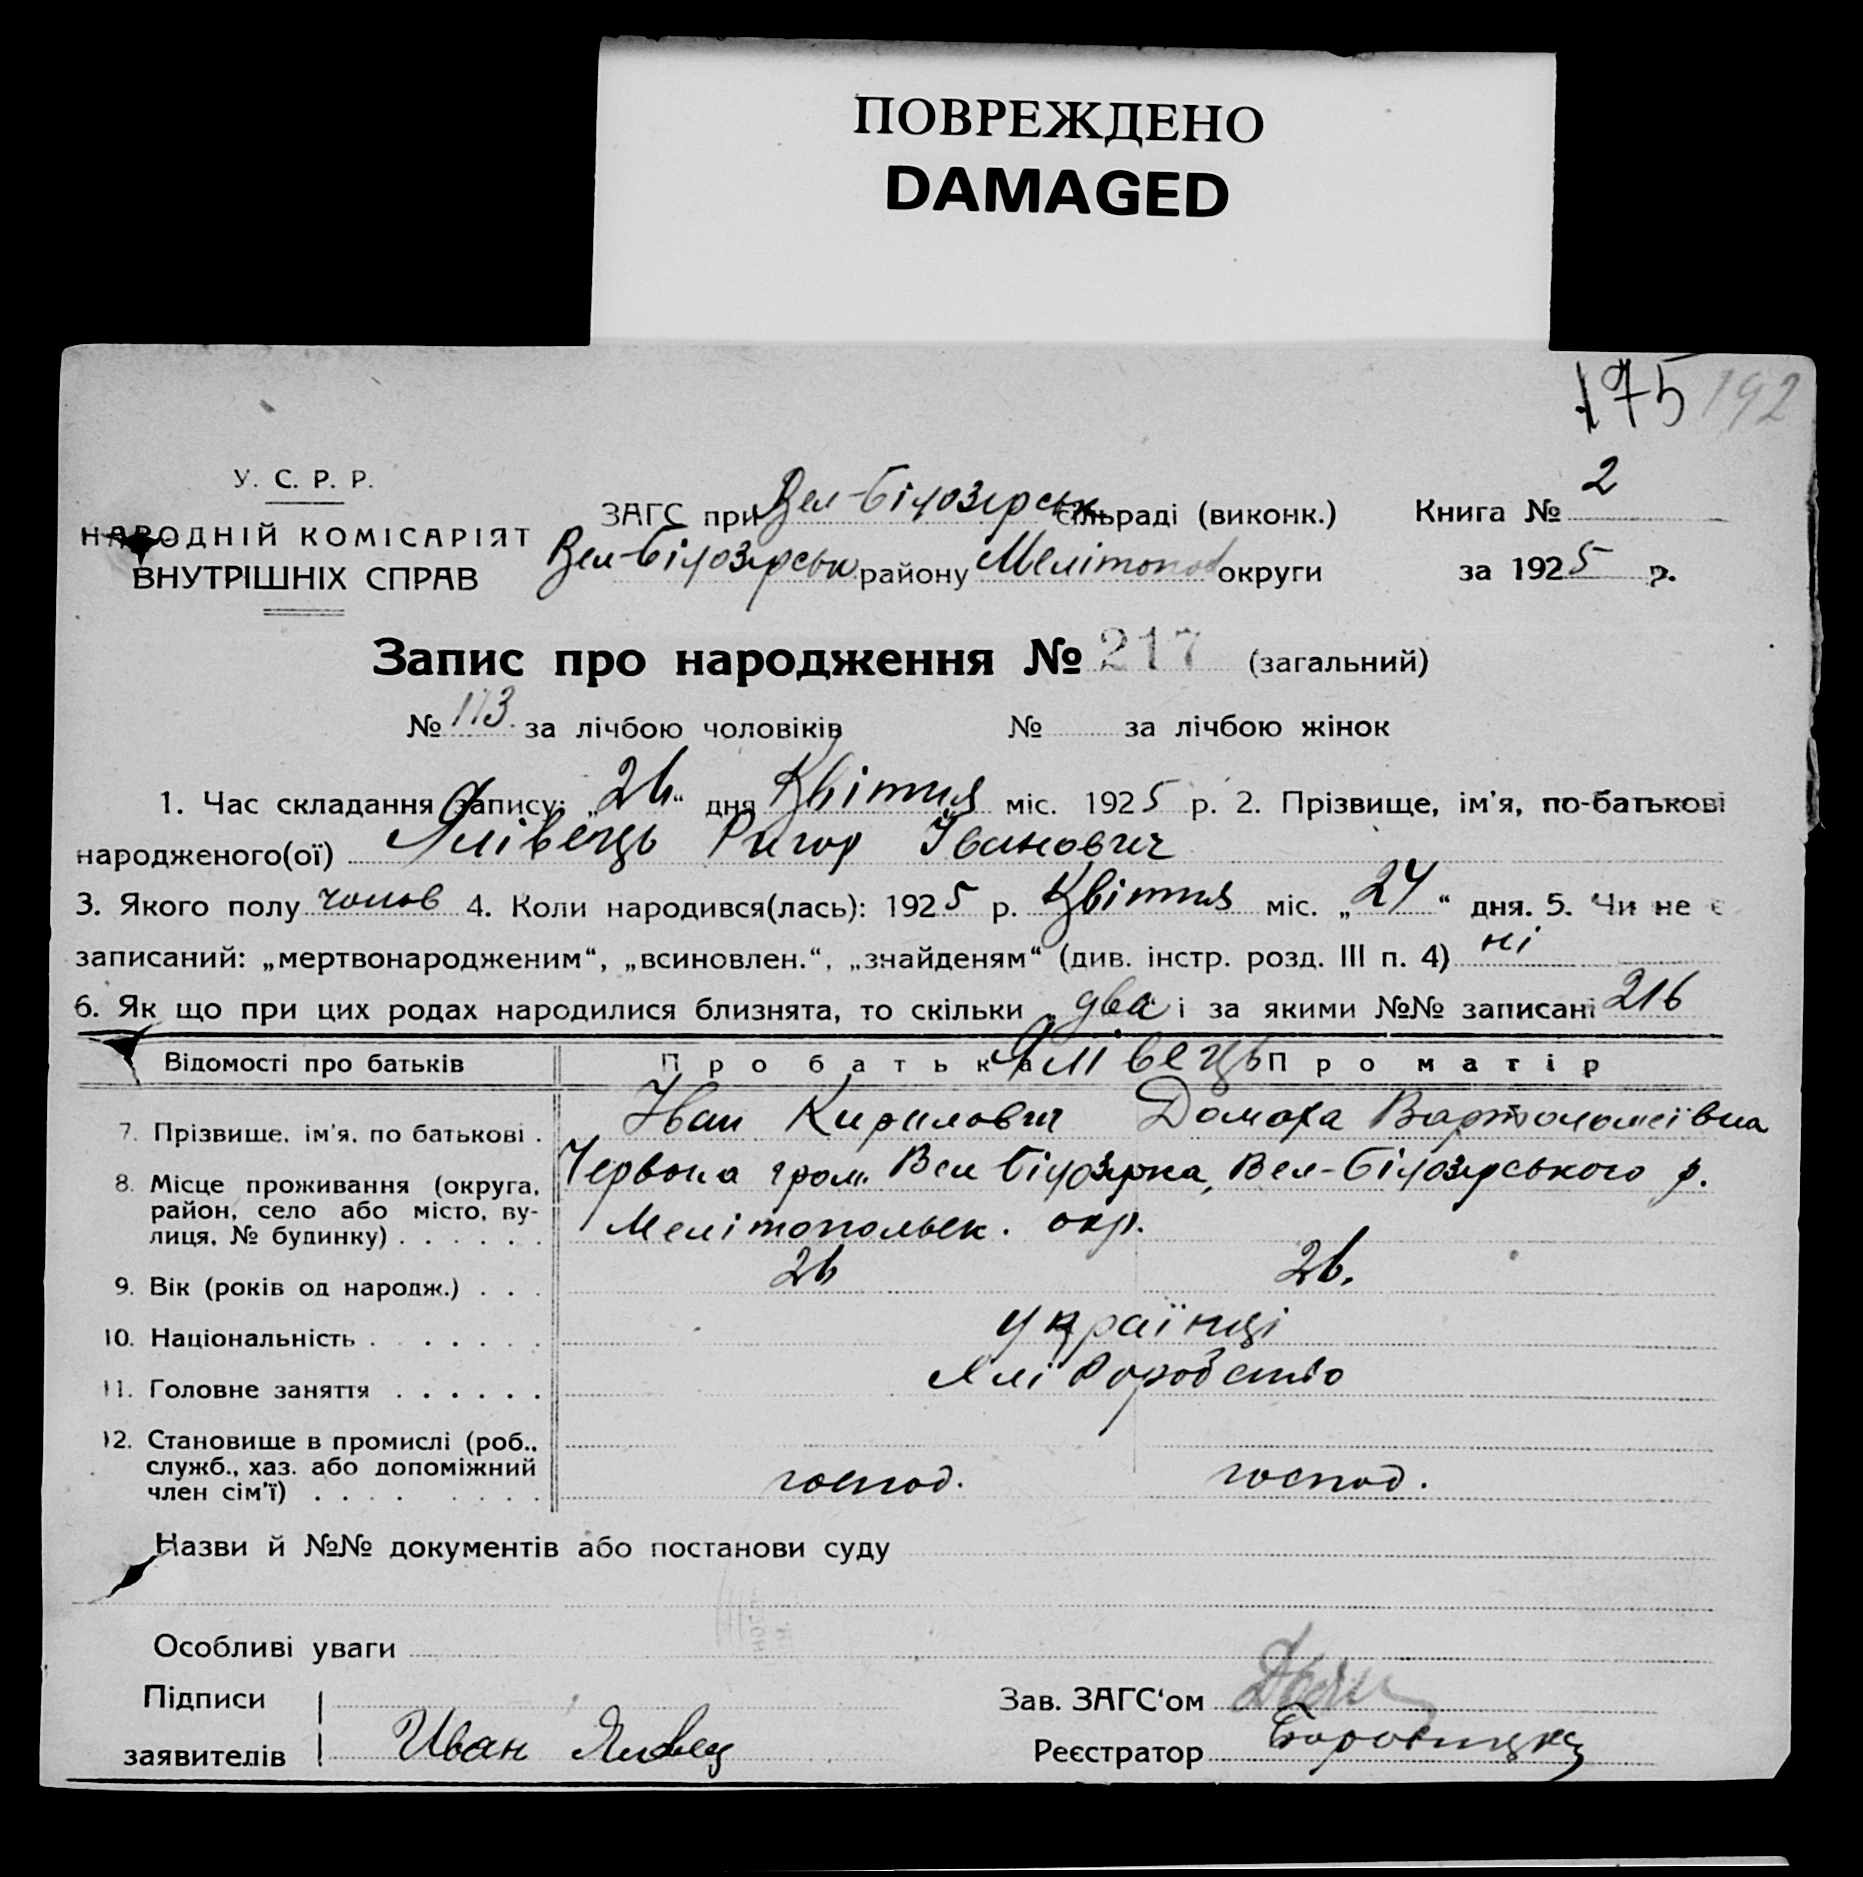 ПОВРЕЖДЕНО
DAMAGED
175 192
У. С. Р. Р.
НАРОДНІЙ КОМІСАРІЯТ
ВНУТРІШНІХ СПРАВ
ЗАГС при Вел-Білозерськ сільраді (виконк.) Книга № 2
Вел-Білозерськ району Мелітопол округи за 1925 р.
Запис про народження № 217 (загальний)
№ 113 за лічбою чоловіків № за лічбою жінок
1. Час складання запису: „26“ дня Квітня міс. 1925 р. 2. Прізвище, ім'я, по-батькові
народженого(ої) Ялівець Ригор Іванович
3. Якого полу чолов 4. Коли народився(лась): 1925 р. Квітня міс. „24“ дня. 5. Чи не є
записаний: „мертвонародженим“, „всиновлен.“, „знайденям“ (див. інстр. розд. III п. 4) ні
6. Як що при цих родах народилися близнята, то скільки два і за якими №№ записані 216
Відомості про батьків Про батька Ялівець Про матір
7. Прізвище, ім'я, по батькові . Іван Кирилович Домаха Вартоломеївна
8. Місце проживання (округа, район, село або місто, вулиця, № будинку) . . . . . . Червона гром. Вел Білозерка, Вел-Білозерського р.
Мелітопольськ. окр.
9. Вік (років од народж.) . . . 26 26.
10. Національність . . . . . . . українці
11. Головне заняття . . . . . . хліборобство
12. Становище в промислі (роб., служб., хаз. або допоміжний член сім'ї) . . . . . . . . господ. господ.
Назви й №№ документів або постанови суду
Особливі уваги
Підписи Зав. ЗАГС'ом
заявителів Иван Яливец Реєстратор